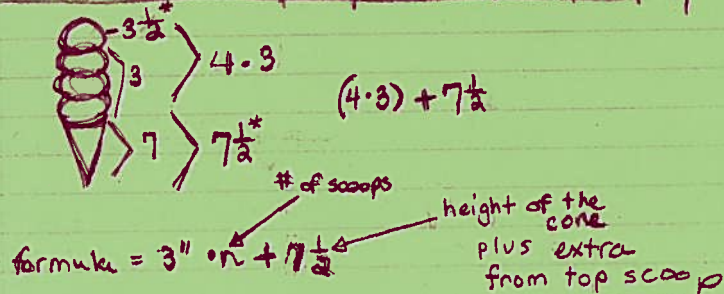 3 1/2*
4 · 3
3
(4·3) + 7 1/2
7
7 1/2*
# of scoops
height of the
cone
plus extra
from top scoop
formula = 3" · n + 7 1/2